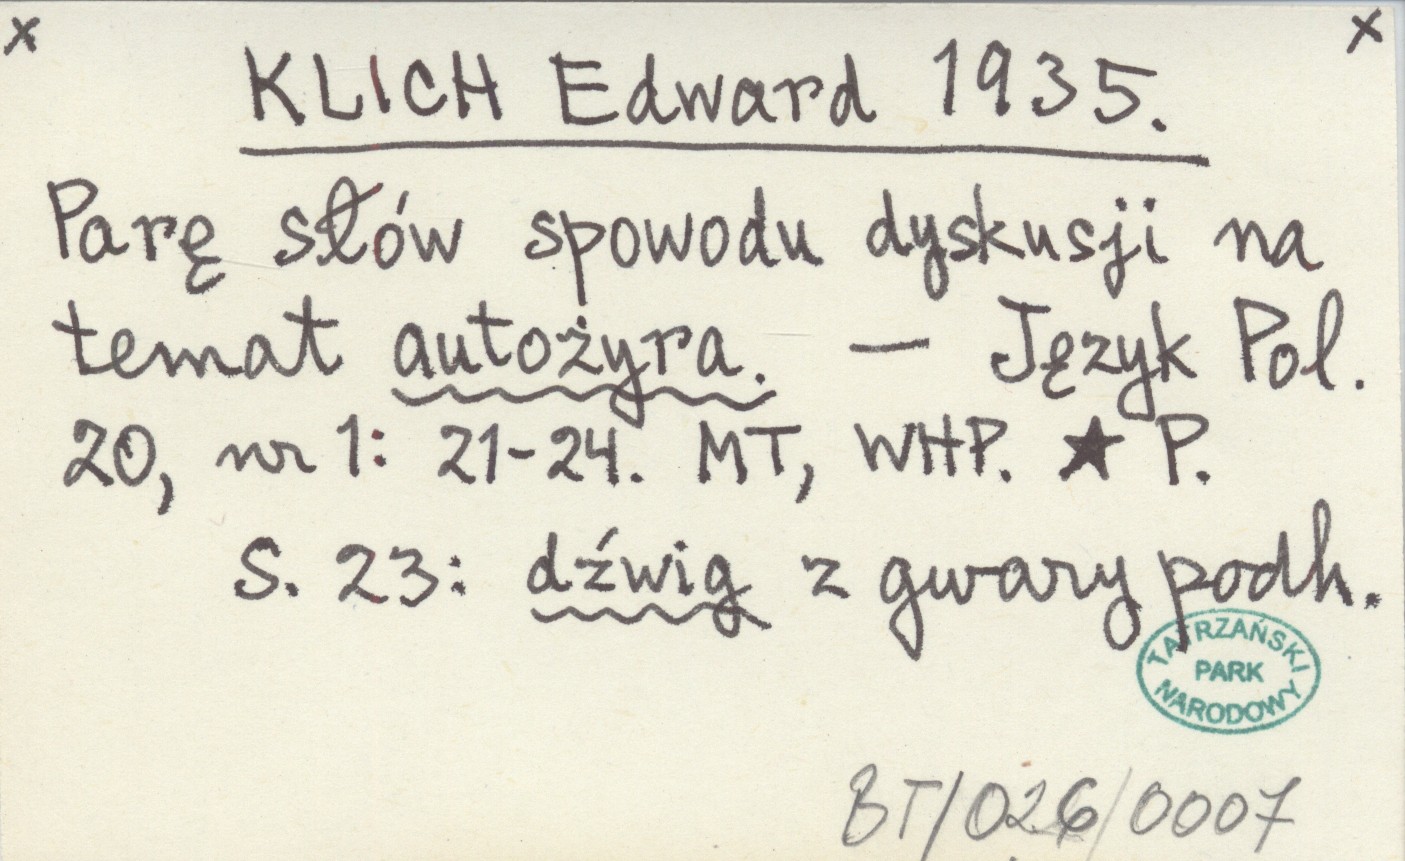 x x
KLICH Edward 1935.
Parę słów spowodu dyskusji na
temat autożyra. — Język Pol.
20, nr 1: 21-24. MT, WHP. ★ P.
S. 23: dźwig z gwary podh.
TATRZAŃSKI
PARK
NARODOWY
BT/026/0007